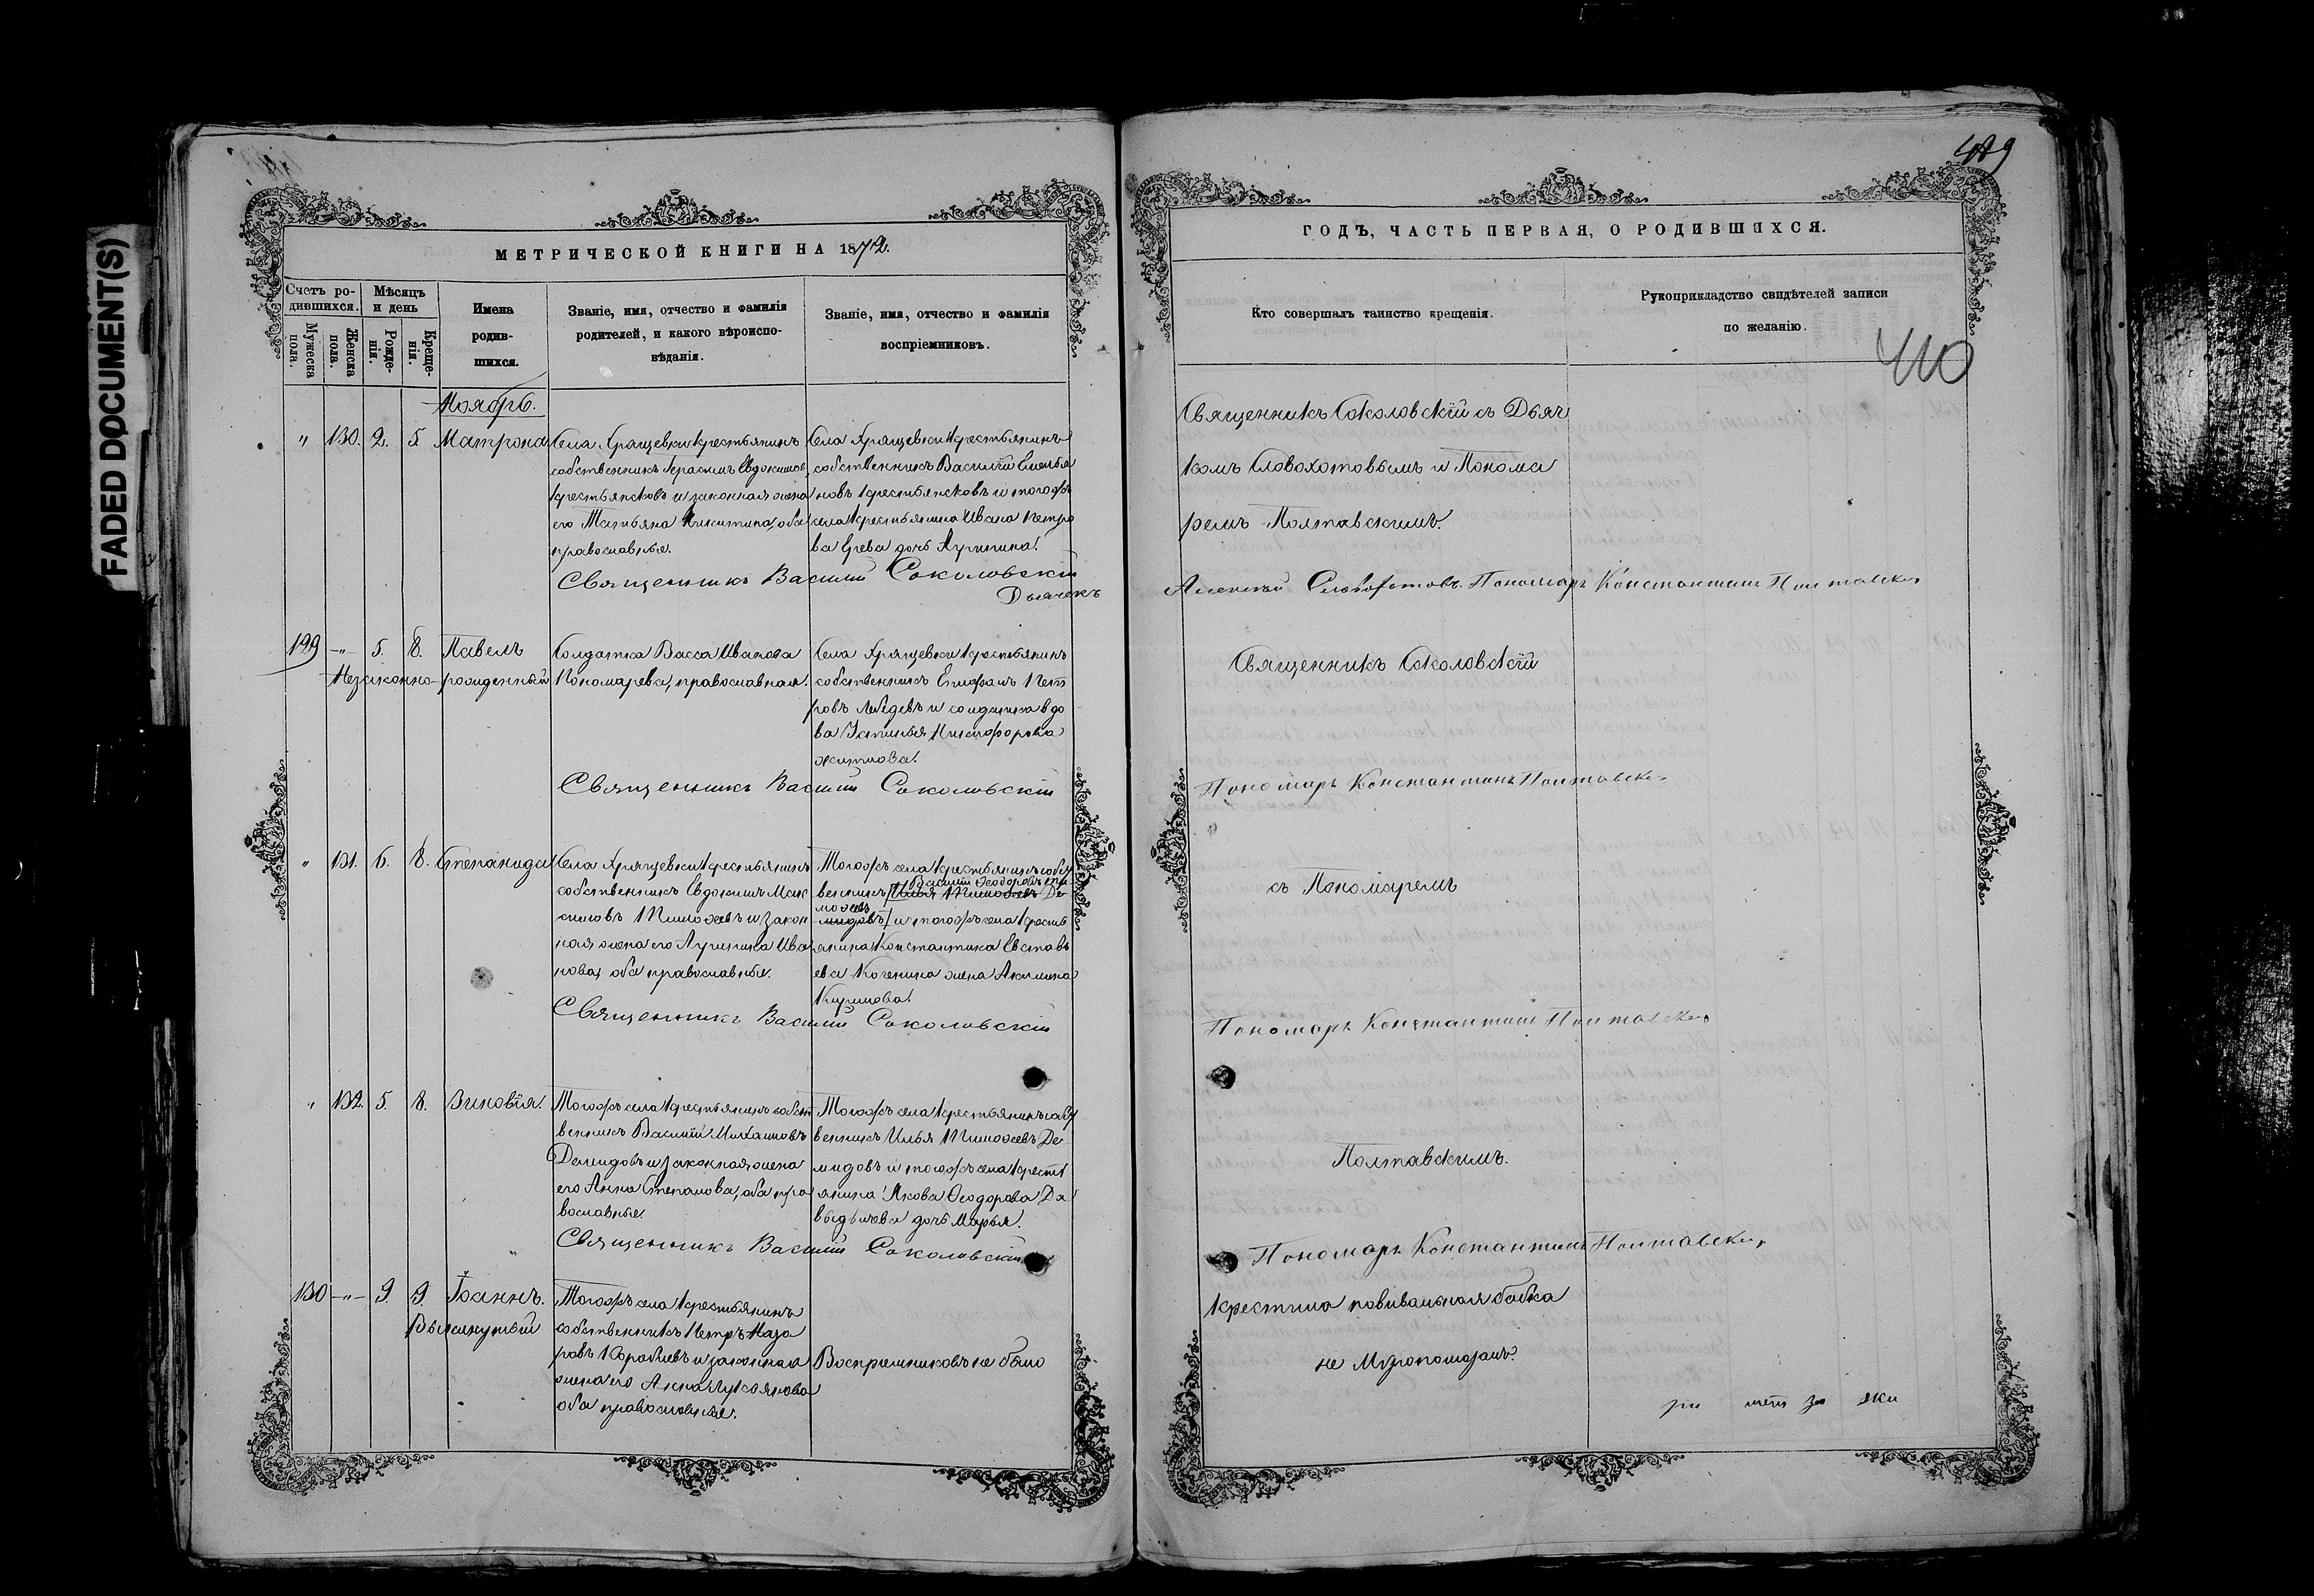 FADED DOCUMENT(S)
МЕТРИЧЕСКОЙ КНИГИ НА 1872.
Счетъ ро-
дившихся.
Мужеска
пола.
Женска
пола.
Мѣсяцъ
и день
Рожде-
нія.
Креще-
нія.
Имена
родив-
шихся.
Званіе, имя, отчество и фамилія
родителей, и какого вѣроиспо-
вѣданія.
Званіе, имя, отчество и фамилія
воспріемниковъ.
Ноябрь.
" 130. 2. 5 Матрона
Села Хрящевки крестьянинъ
собственникъ Герасимъ Евдокимовъ
Крестьянсковъ и законная жена
его Татьяна Никитина, оба
православные.
Села Хрящевки крестьянинъ
собственникъ Василій Емелья
новъ Крестьянсковъ и тогожъ
села крестьянина Ивана Петро
ва дочь Агрипина.
Священникъ Василій Соколовскій
Дьячекъ
129 -"- 5. 8. Павелъ
Незаконно-рожденный
Солдатка Васса Иванова
Пономарева, православная.
Села Хрящевки крестьянинъ
собственникъ Епифанъ Пет
ровъ Лебедевъ и солдатка вдо
ва Устинья Никифорова
Священникъ Василій Соколовскій
" 131. 6. 8. Степанида
Села Хрящевки крестьянинъ
собственникъ Евдокимъ Мак
симовъ Тимофеевъ и закон
ная жена его Агрипина Ива
нова, оба православные.
Тогожъ села крестьянинъ собст
Василій Ѳеодоровъ Ти
венникъ Илья Тимофеевъ Де
мофеевъ
мидовъ и тогожъ села крестьь
янина Константина Евстафь
ева Кочекина жена Акилина
Священникъ Василій Соколовскій
" 132. 5. 8. Зиновія.
Тогожъ села крестьянинъ собст
венникъ Василій Михайловъ
Демидовъ и законная жена
его Анна Степанова, оба пра
вославные.
Тогожъ села крестьянинъ собст
венникъ Илья Тимофеевъ Де
мидовъ и тогожъ села крестьь
янина Якова Ѳеодорова Да
выдычева дочь Марья.
Священникъ Василій Соколовскій
130 -"- 9. 9. Іоаннъ.
Тогожъ села крестьянинъ
собственникъ Петръ Наза
ровъ Кораблевъ и законная
жена его Анна Лукоянова
оба православные.
Воспріемниковъ не было
489
ГОДЪ, ЧАСТЬ ПЕРВАЯ, О РОДИВШИХСЯ.
Кто совершалъ таинство крещенія.
Рукоприкладство свидѣтелей записи
по желанію.
410
Священникъ Соколовскій съ Дьяч
комъ Словохотовымъ и Понома
ремъ Полтавскимъ.
Алексѣй Словохотовъ. Пономарь Константинъ Полтавскій
Священникъ Соколовскій
Пономарь Константинъ Полтавскій
съ Пономаремъ
Пономарь Константинъ Полтавскій
Полтавскимъ.
Пономарь Константинъ Полтавскій
Крестила повивальная бабка
не Мѵропомазанъ.